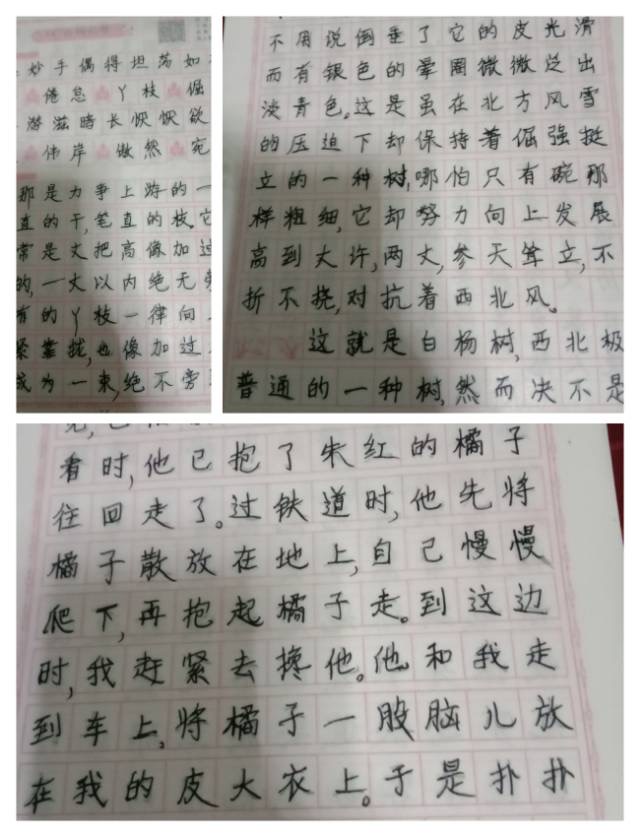 妙手偶得坦荡如
倦怠 丫枝 倔
游滋時长恹恹欲
伟岸 傲然 宛
那是力争上游的一
直的干,笔直的枝。它
常是丈把高像加过
的,一丈以内绝无旁
有的丫枝一律向
紧靠拢,也像加过
成为一束,绝不旁
不用说倒垂了它的皮光滑
而有银色的晕圈微微泛出
淡青色。这是虽在北方风雪
的压迫下却保持着倔强挺
立的一种树,哪怕只有碗那
样粗细,它却努力向上发展
高到大许,两丈,参天耸立,不
折不挠,对抗着西北风。
这就是白杨树,西北极
普通的一种树,然而决不是
看时,他已抱了朱红的橘子
往回走了。过铁道时,他先将
橘子散放在地上,自己慢慢
爬下,再抱起橘子走。到这边
时,我赶紧去搀他。他和我走
到车上,将橘子一股脑儿放
在我的皮大衣上。于是扑扑